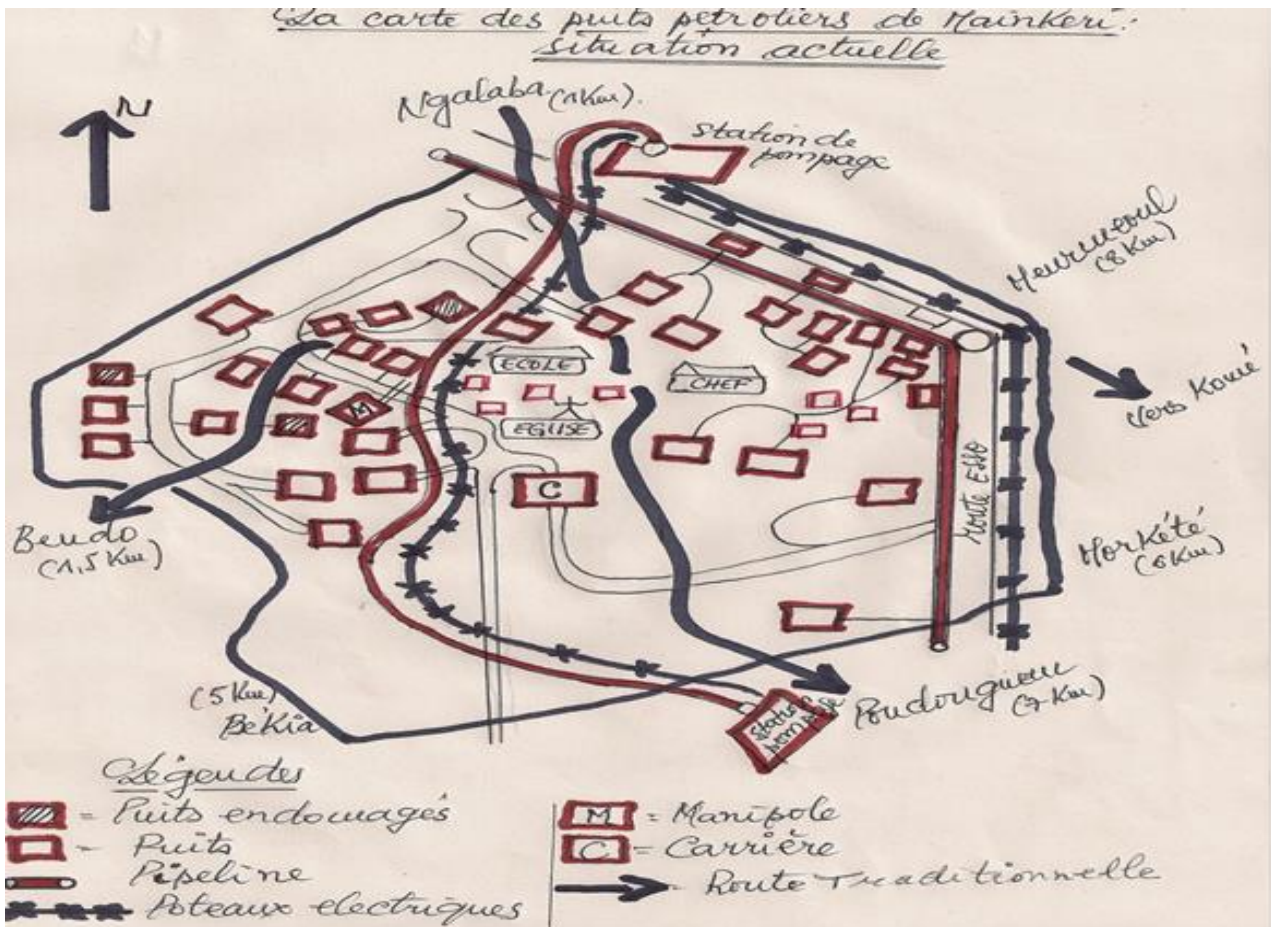 La carte des puits pétroliers de Mainkeri:
situation actuelle
N
Ngalaba (1Km).
Station de
pompage
Meurmeoul
(8 Km)
Vers Komé
ECOLE
CHEF
EGLISE
M
C
Route ESSO
Morkété
(6Km)
Bendo
(1,5 Km)
(5 Km)
Békia
Station
pompage
Poudouguem
(7 Km)
Légendes
= Puits endouagés
= Puits
Pipeline
Poteaux electriques
M = Manipole
C = Carrière
Route Traditionnelle